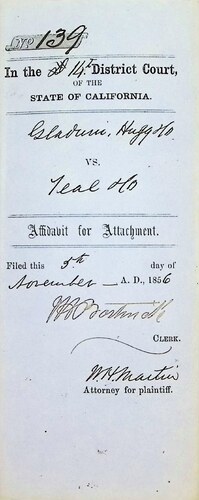 No 139
In the 14th District Court,
OF THE
STATE OF CALIFORNIA.
Gladwin, Hugg &Co.
VS.
Teal &Co
Affidavit for Attachment.
Filed this 5th day of
November A. D., 1856
CLERK.
W. H. Martin
Attorney for plaintiff.